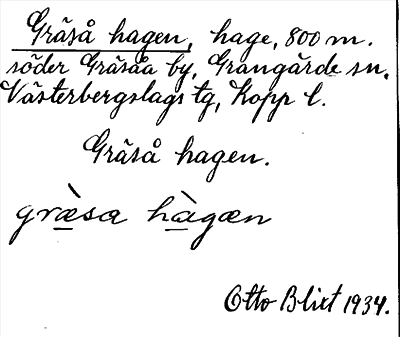 Gräså hagen, hage, 800 m.
söder Gräsåa by, Grangärde sn.
Västerbergslags tg, Kopp l.
Gräså hagen.
græ̀sa hàgæn
Otto Blixt 1934.